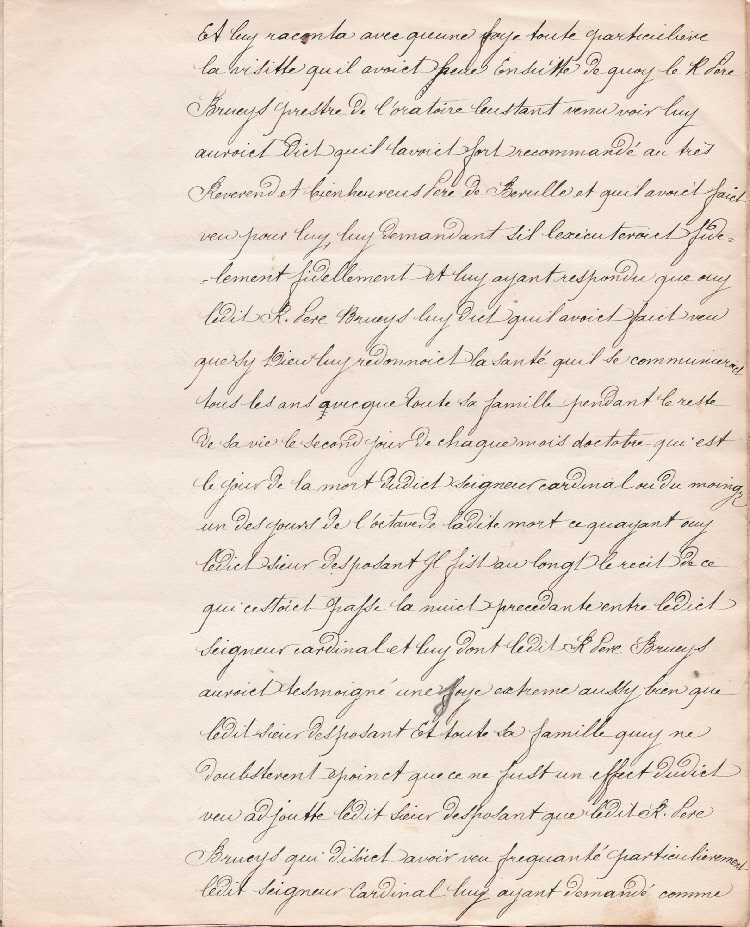 Et luy raconta avec queune joye toute particuliere
la visitte quil avoict faicte Ensuitte de quoy le R Pere
Brueys prestre de l'oratoire leustant venu voir luy
auroict Dict quil lavoict fort recommandé au très
Reverend et bienheureus Pere de Berulle et quil avoict faict
veu pour luy, luy demandant sil lexecuteroict fide=
=lement fidellement et luy ayant respondu que ouy
ledit R. Pere Brueys luy dict quil avoict faict veu
que sy Dieu luy redonnoict la santé quil se communieroit
tous les ans avecque toute sa famille pendant le reste
de sa vie le second jour de chaque mois doctobre qui est
le jour de la mort dudict seigneur cardinal ou du moings
un des jours de l'octave de ladite mort ce quayant ouy
ledict sieur desposant Il fist au longt le recit de ce
qui cestoict passe la nuict precedante entre ledict
seigneur cardinal et luy dont ledit R Pere Brueys
auroict tesmoigné une joye extreme aussy bien que
ledit sieur desposant Et toute sa famille quy ne
doubsterent poinct que ce ne fust un effect dudict
veu adjoutte ledit sieur desposant que ledit R. Pere
Brueys qui disoict avoir veu frequanté particulièrement
ledit seigneur Cardinal luy ayant demandé comme